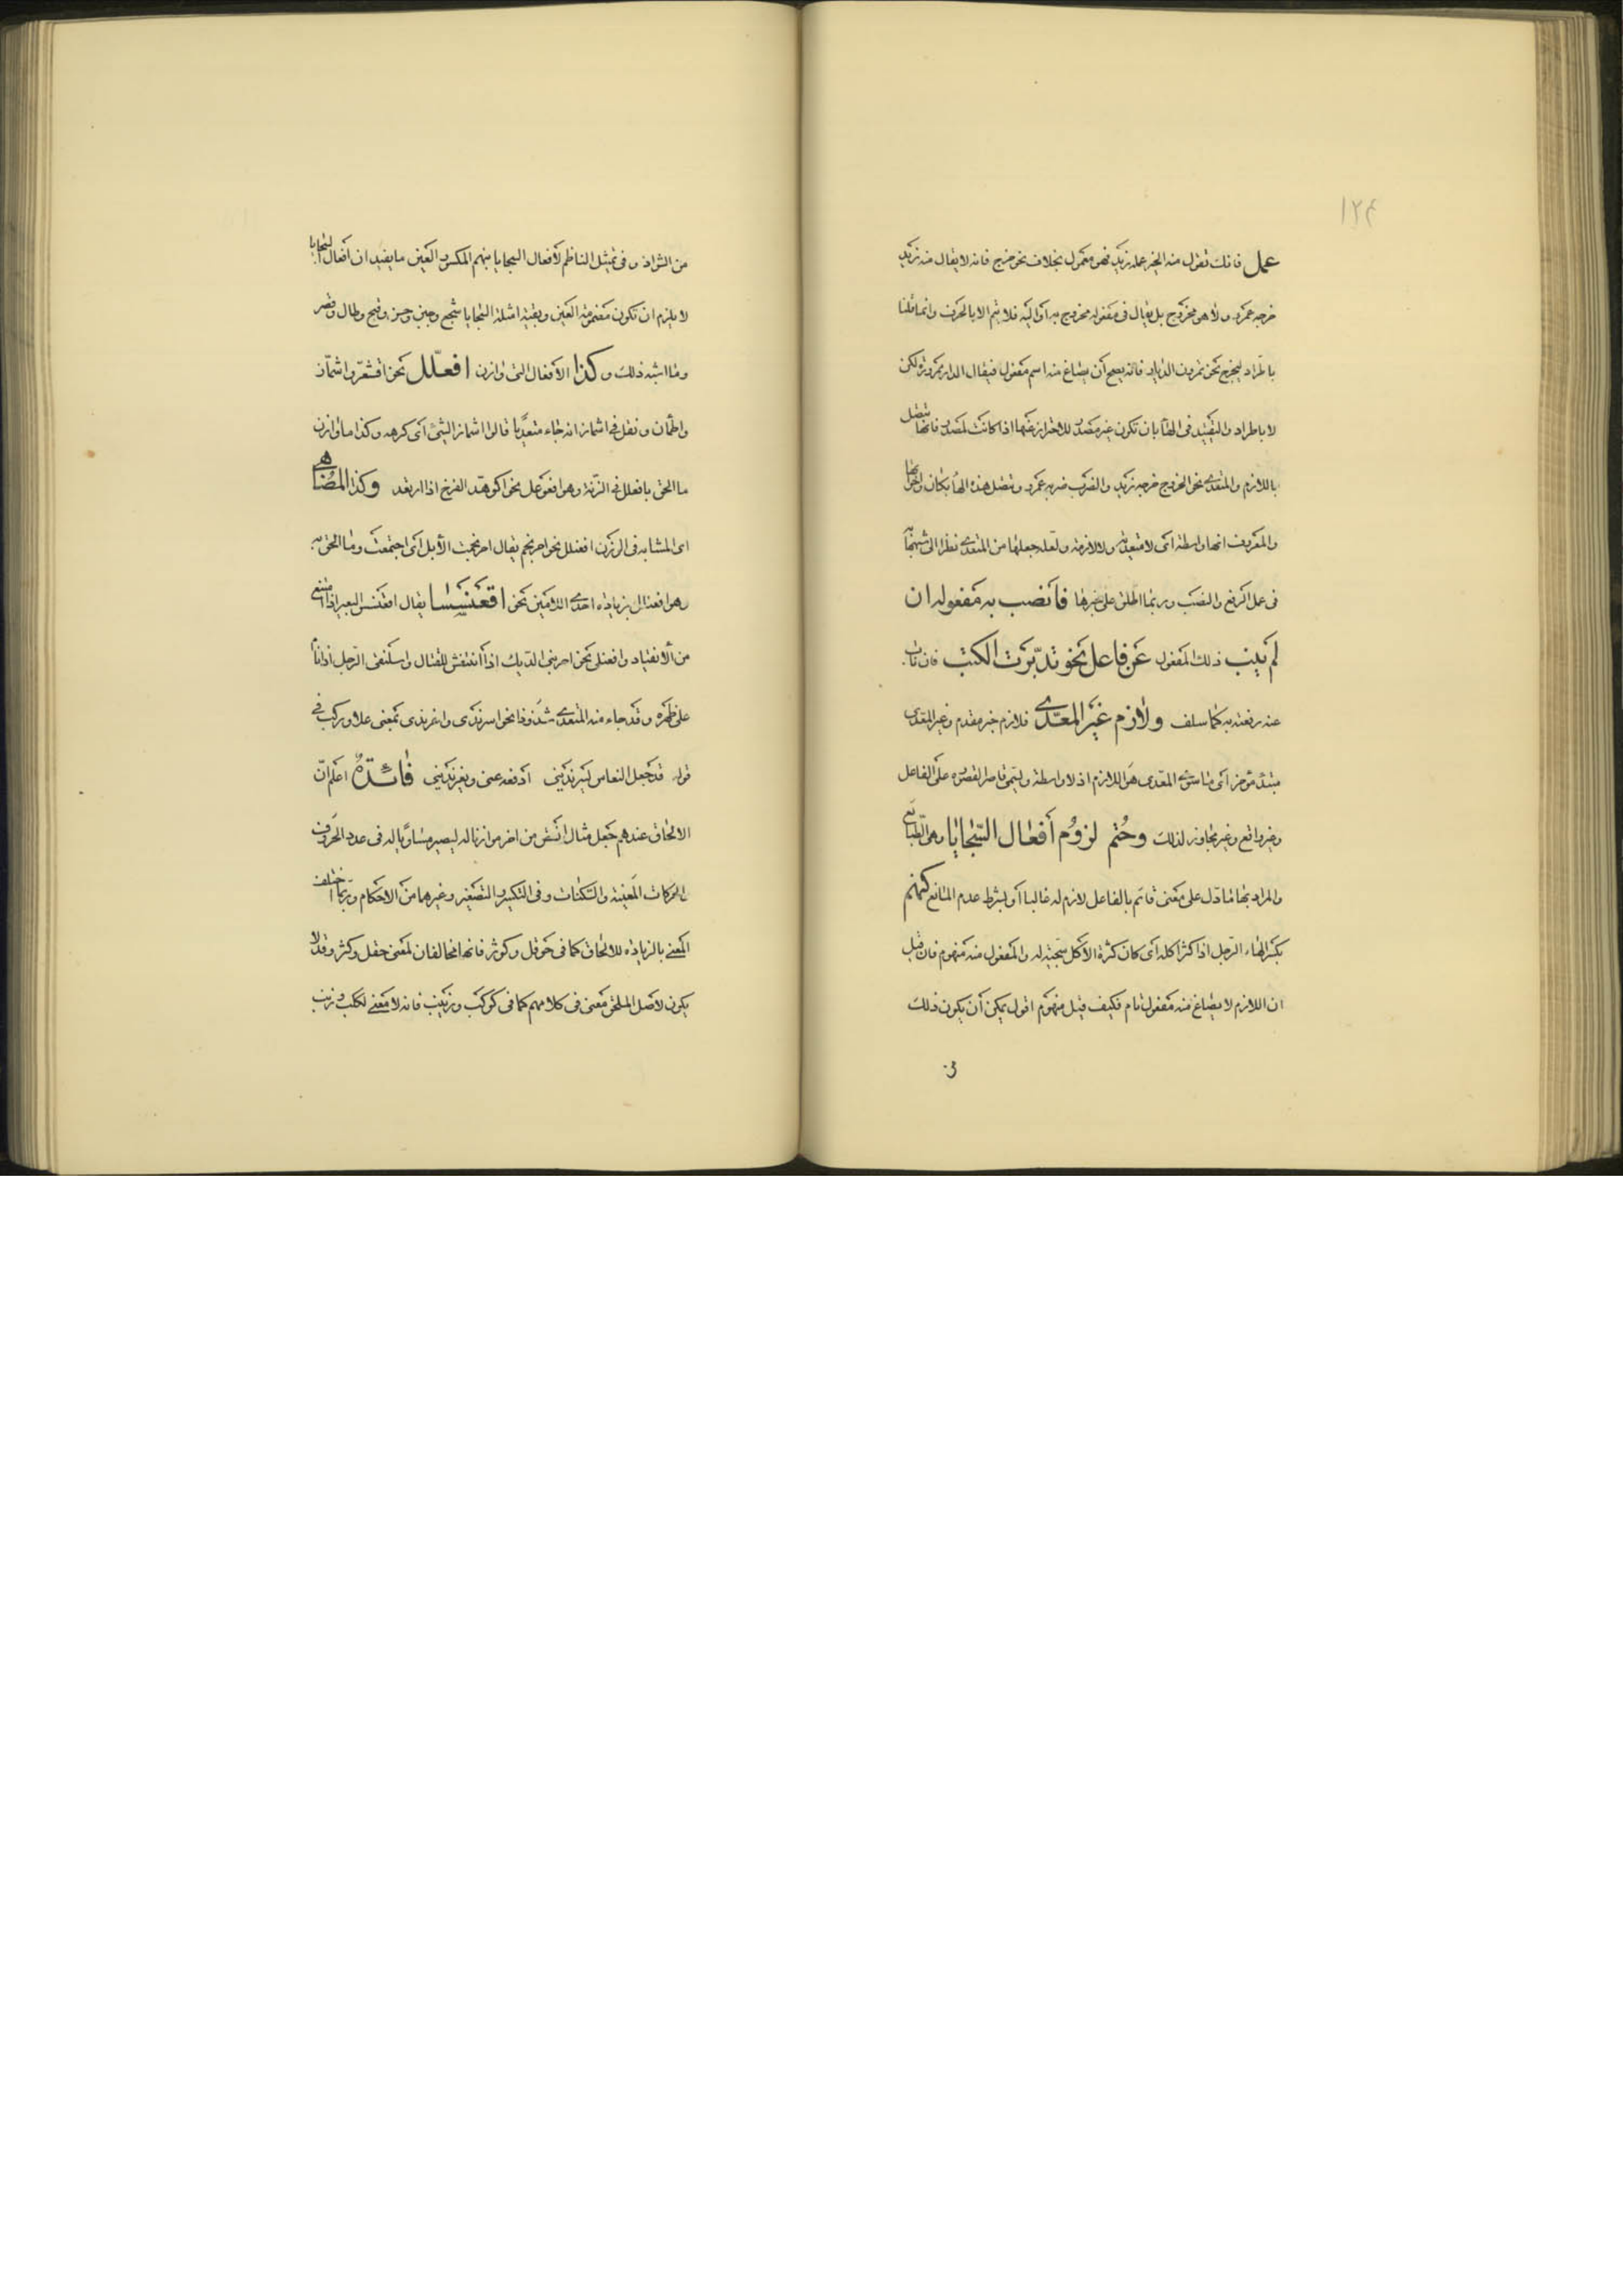 ١٢٤
عمل فانك تقول منه الخير عمله زيد فهو معمول بخلاف نحو خرج فانه لا يقال منه زيد
خرجه عمرو ولا هو مخروج بل يقال فى مفعوله مخروج به أو اليه فلا يتم الا بالحرف وانما قلنا
باطراد ليخرج نحو تمرون الديار فانه يصح أن يصاغ منه اسم مفعول فيقال الدار ممرورة لكن
لا باطراد والتقييد فى الهاء بان تكون غير مصدر للاحتراز عنها اذا كانت لمصدر فانها تتصل
باللازم والمتعدى نحو الخروج خرجه زيد والضرب ضربه عمرو وتتصل هذه الهاء بكان واخواتها
والمعروف انها واسطة أى لا متعدية ولا لازمة ولعله جعلها من المتعدى نظرا الى شبهها به
فى عمل الرفع والنصب وربما اطلق على خبرها فانصب به مفعوله ان
لم ينب ذلك المفعول عن فاعل نحو تدبرت الكتب فان ناب
عنه رفعته به كما سلف ولازم غير المعدى فلازم خبر مقدم وغير المعدى
مبتدأ مؤخر أى ما سوى المعدى هو اللازم اذ لا واسطة ويسمى قاصرا لقصوره على الفاعل
وغير واقع وغير مجاوز لذلك وحتم لزوم أفعال السجايا وهى الطبايع
والمراد بها ما دل على معنى قائم بالفاعل لازم له غالبا أو بشرط عدم المانع كنهم
بكسر الهاء الرجل اذا كثر اكله أى كان كثرة الأكل سجية له والمفعول منه منهوم فان قيل
ان اللازم لا يصاغ منه مفعول تام فكيف قيل منهوم اقول يمكن أن يكون ذلك
من الشواذ وفى تمثيل الناظم لأفعال السجايا بنهم المكسور العين ما يفيد ان أفعال السجايا
لا يلزم ان تكون مضمومة العين وبقية امثلة السجايا شجع وجبن وحسن وقبح وطال وقصر
وما اشبه ذلك وكذا الأفعال التى وازن افعلل نحو اقشعر واشمأز
واطمأن ونقل فى اشمأز انه جاء متعديا قالوا اشمأز الشئ أى كرهه وكذا ما وازن
ما الحق بافعلل فى الزنة وهو افوعل نحو اكوهد الفرخ اذا ارتعد وكذا المضاهى
اى المشابه فى الوزن افعنلل نحو احرنجم يقال احرنجمت الأبل أى اجتمعت وما الحق به
وهو افعنلل بزيادة احدى اللامين نحو اقعنسسا يقال اقعنسس البعير اذا امتنع
من الانقياد وافعنلى نحو احرنبى الديك اذا انتفش للقتال واسلنقى الرجل اذا نام
على ظهره وقد جاء منه المتعدى شذوذا نحو اسرندى واغرندى بمعنى علا وركب فى
قوله قد جعل النعاس يسرندينى أدفعه عنى ويغرندينى فائدة اعلم ان
الالحاق عندهم جعل مثال انقص من اخر موازنا له ليصير مساويا له فى عدد الحروف
والحركات المعينة والسكنات وفى التكسير والتصغير وغيرهما من الاحكام وربما اختلف
المعنى بالزيادة للالحاق كما فى حوقل وكوثر فانهما مخالفان لمعنى حقل وكثر وقد لا
يكون لأصل الملحق معنى فى كلامهم كما فى كوكب وزينب فانه لا معنى لككب وزنب